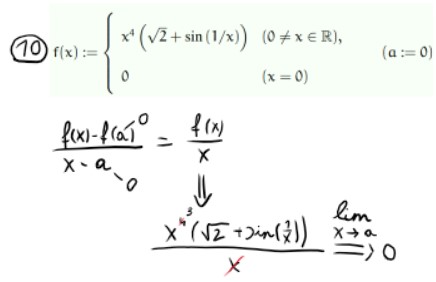 10 f(x) := { x⁴(√2 + sin(1/x)) (0 ≠ x ∈ ℝ), (a := 0)
0 (x = 0)
(f(x) - f(a))/(x - a) = f(x)/x
0
0
⇓
x⁴ ³(√2 + sin(1/x))/x lim x→a ⇒ 0